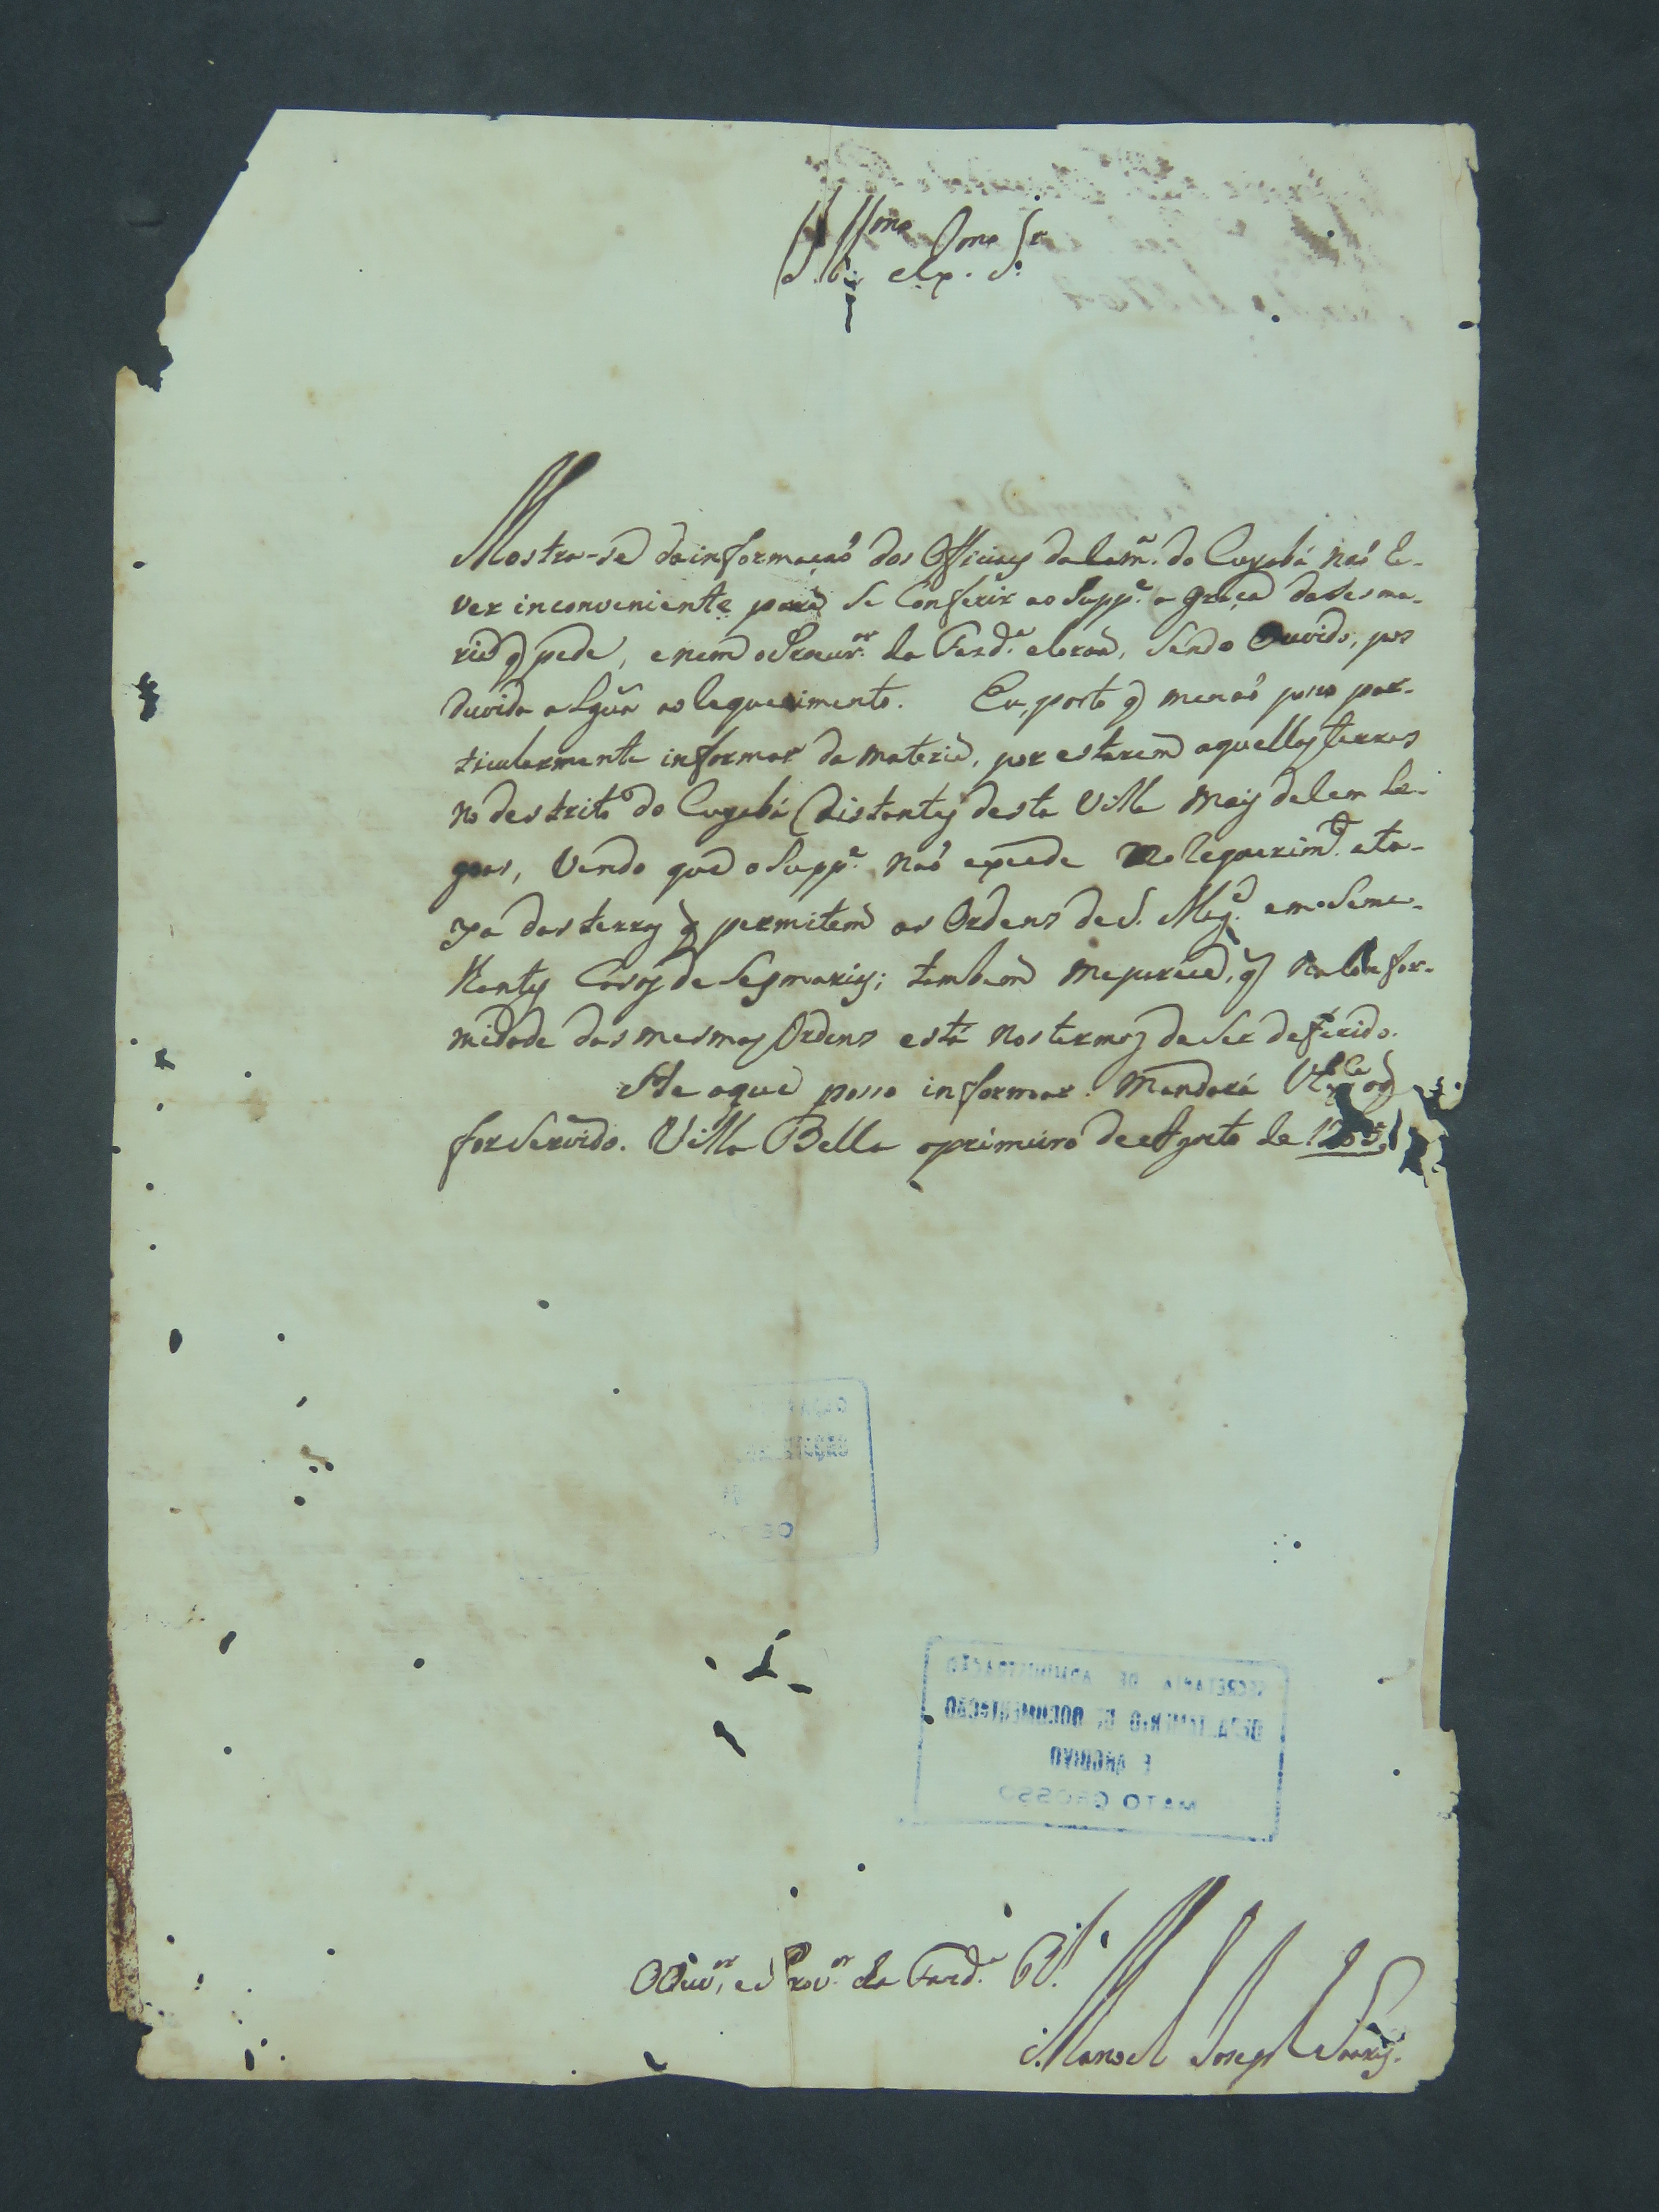 Ill.mo Snr
Mostra-se da informaçaõ dos Officiaes da Cam.ª do Cuyabá naõ ha-
ver inconveniente para se Conferir ao Supp.e a graça da Sesma-
ria q pede, e nem o Procur.or da Fazd.ª e Coroa, Sendo Ouvido, pos
duvida algũa ao Requerimento. Eu, posto q menaõ posso par-
ticularmente informar da materia, por estarem aquellas terras
no destrito do Cuyabá distantes desta Villa mais de Cem Le-
goas, Vendo que o Supp.e naõ excede no Requerim.to a ta-
xa das terras q permitem as Ordens de S. Mag.e em Seme-
lhantes Casos de Sesmarias; tambem me parece, q na Confor-
midade das mesmas Ordens está nos termos de Ser deferido.
He o que posso informar. Mandará V. Ex.cia o q
for Servido. Villa Bella o primeiro de Agosto de
SECRETARIA DE ADMINISTRAÇÃO
DEPARTAMENTO DE DOCUMENTAÇÃO
E ARQUIVO
MATO GROSSO
O Ouv.or, e Prov.or da Fazd.ª R.l
Manoel Joseph Soares.